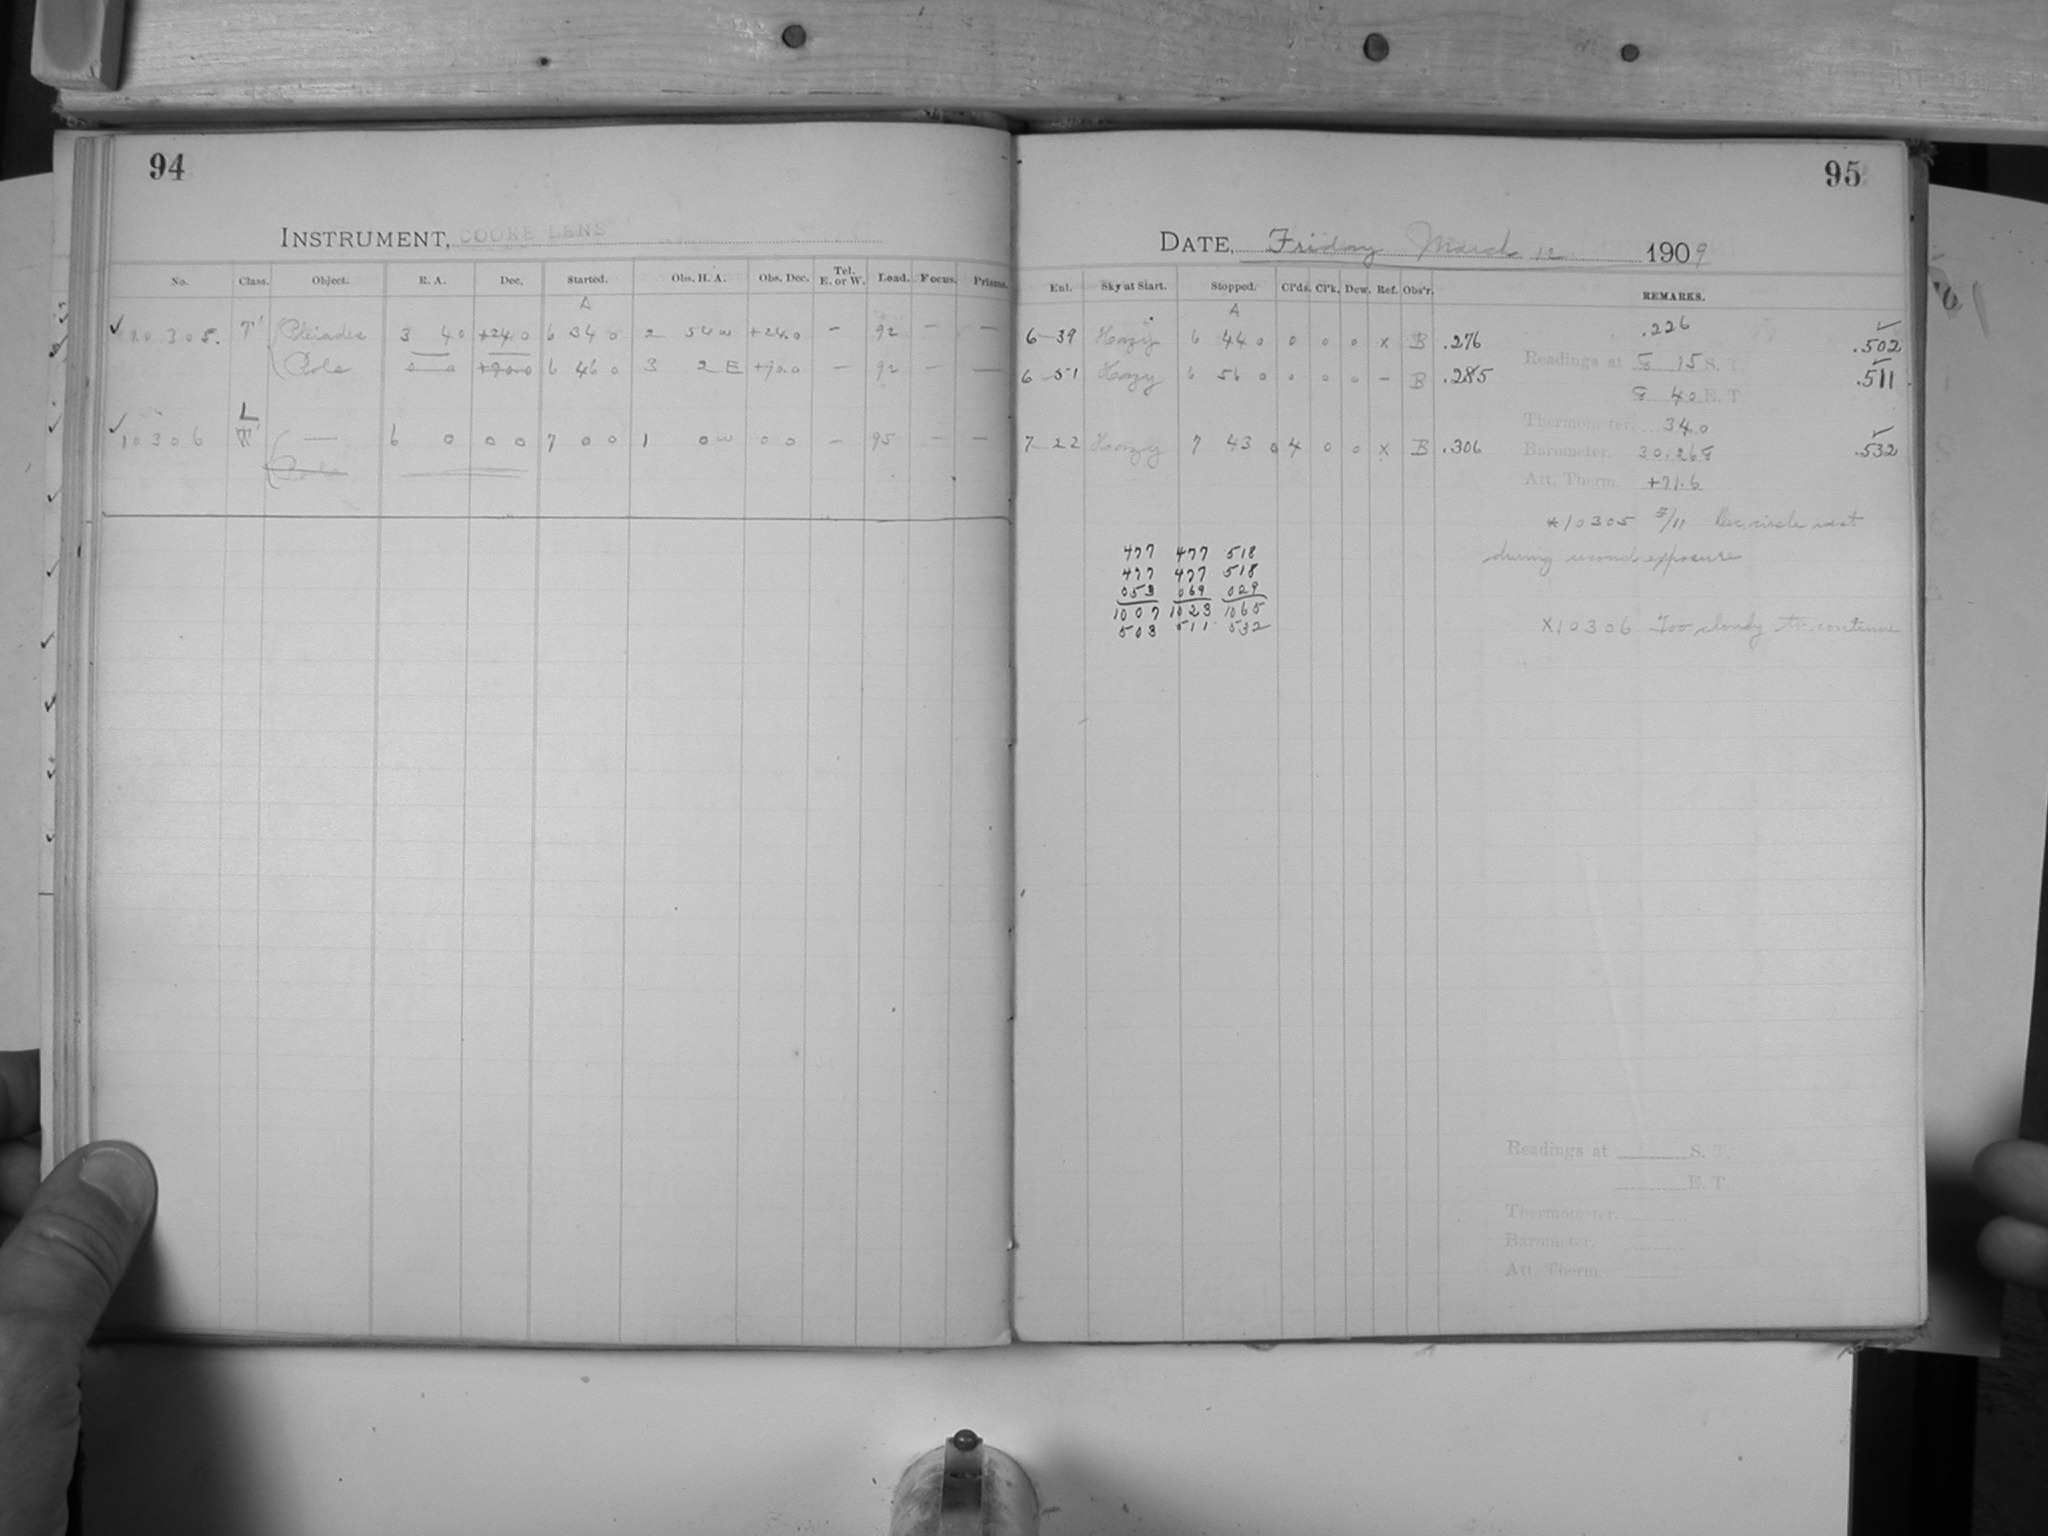 94
INSTRUMENT, COOKE LENS
No. Class. Object. R. A. Dec. Started. Obs. H. A. Obs. Dec. Tel. E. or W. Load. Focus. Prisms.
A
✓ 10305. T' Pleiades 3 40 +24 0 6 34 0 2 54 W +24.0 – 92 – –
Pole 0 0 +90 0 6 46 0 3 2 E +90.0 – 92 – –
L
✓ 10306 T' — 6 0 0 0 7 0 0 1 0 W 0 0 – 95 – –
Pole
95
DATE, Friday March 12 1909
Enl. Sky at Start. Stopped. Cl'ds. Cl'k. Dew. Ref. Obs'r. REMARKS.
A
6–39 Hazy 6 44 0 0 0 0 x B .276 .226 .502
Readings at 8 15 S. T.
6–51 Hazy 6 56 0 0 0 0 – B .285 .511
8 40 E. T.
Thermometer. 34.0
7–22 Hazy 7 43 0 4 0 0 x B .306 .532
Barometer. 30.268
Att. Therm. +71.6
*10305 Dec. circle west
during second exposure
477 477 518
477 477 518
053 069 029
1007 1023 1065
503 511 532
X10306 Too cloudy to continue
Readings at S. T.
E. T.
Thermometer.
Barometer.
Att. Therm.